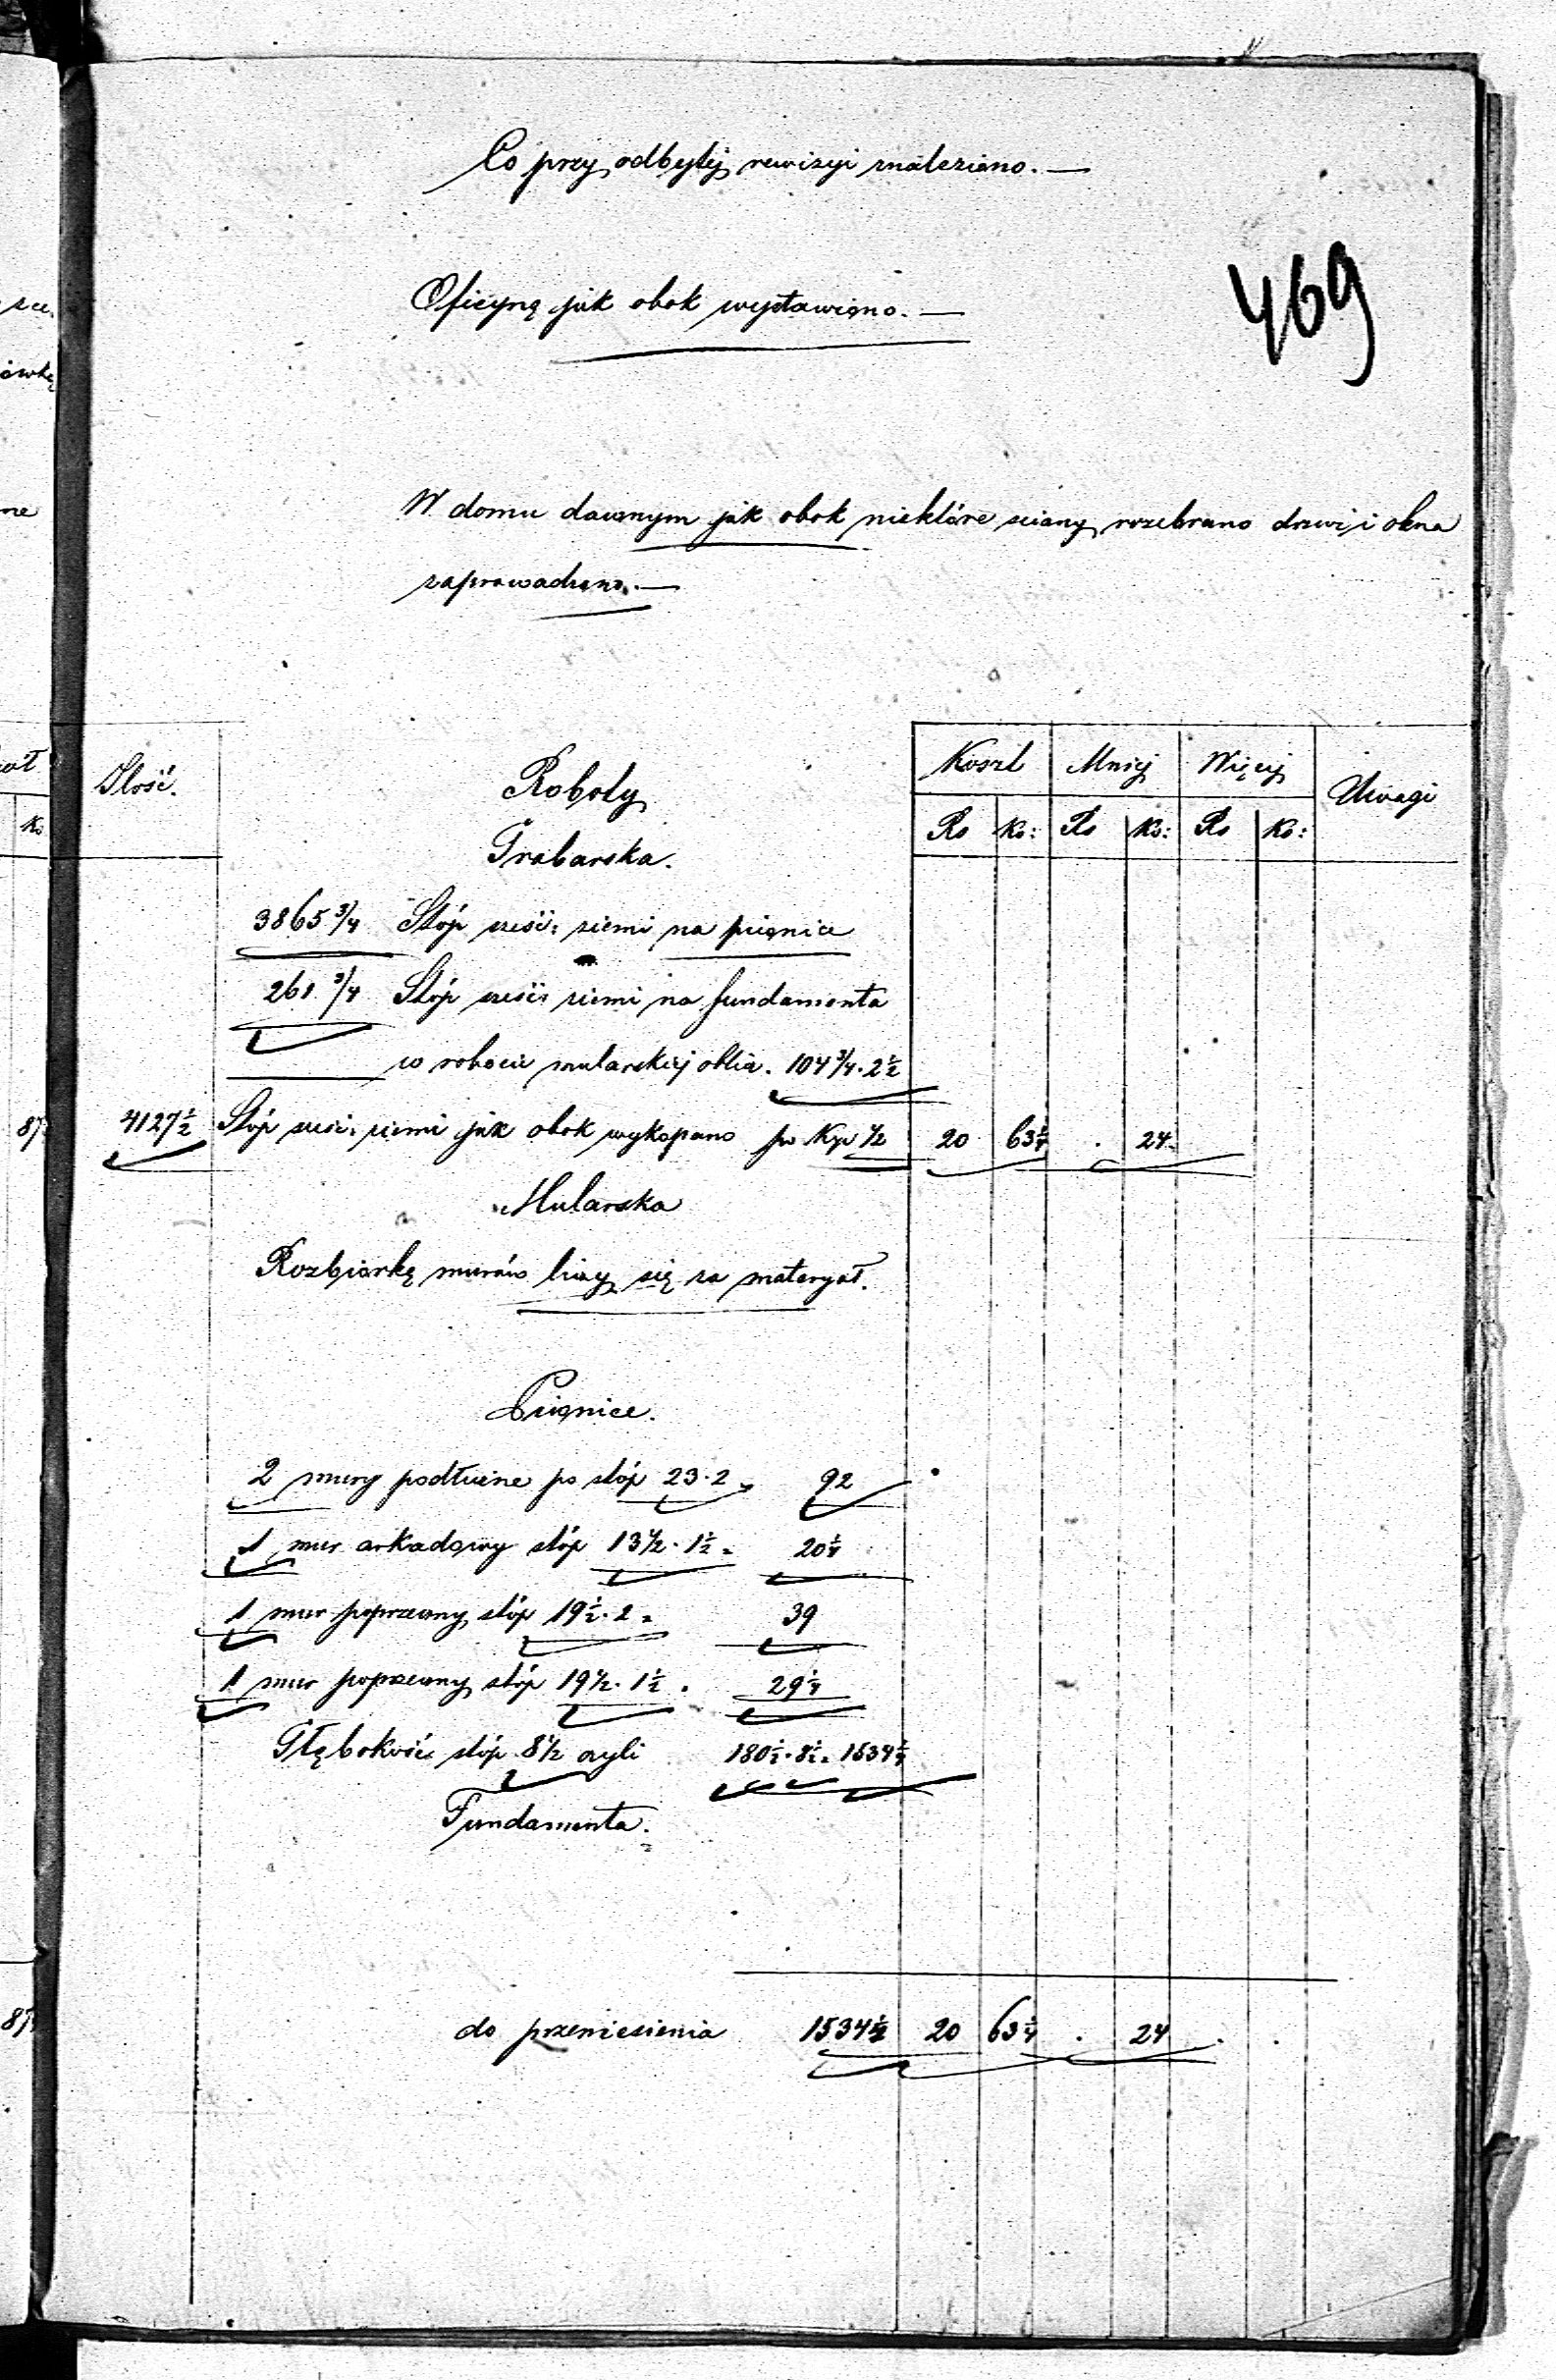 Co przy odbytéj rewizyi znaleziono. —
469
Oficynę jak obok wystawiono. —
W domu dawnym jak obok niektóre sciany rozebrano drzwi i okna
zaprowadzono. —
Ilość.
Roboty
Koszt Mniéj Więcéj Uwagi
Rs Ko: Rs Ko: Rs Ko:
Grabarska.
3865 3/4 Stóp sześć: ziemi na piwnice
261 3/4 Stóp sześć: ziemi na fundamenta
w robocie mularskiéj oblicz. 104 3/4 · 2 1/2
4127 1/2 Stóp sześć: ziemi jak obok wykopano po Kp 1/2 20 63 1/4 . 24
Mularska
Rozbiorkę murów liczy się za materyał.
Piwnice.
2 mury podłużne po stóp 23 · 2 = 92
1 mur arkadowy stóp 13 1/2 · 1 1/2 = 20 1/4
1 mur poprzeczny stóp 19 1/2 · 2 = 39
1 mur poprzeczny stóp 19 1/2 · 1 1/2 . 29 1/4
Głębokości stóp 8 1/2 czyli 180 1/2 · 8 1/2 = 1534 1/4
Fundamenta.
do przeniesienia 1534 1/2 20 63 1/4 . 24 . .